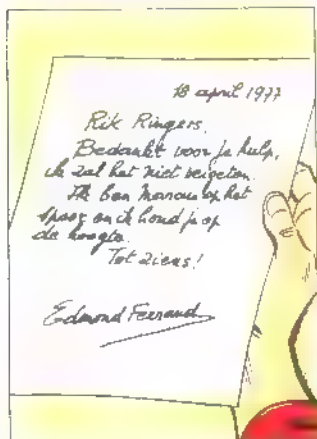 18 april 1977
Rik Ringers,
Bedankt voor je hulp,
ik zal het niet vergeten.
Ik ben Morrow op het
spoor en ik houd je op
de hoogte.
Tot ziens!
Edmond Ferrand